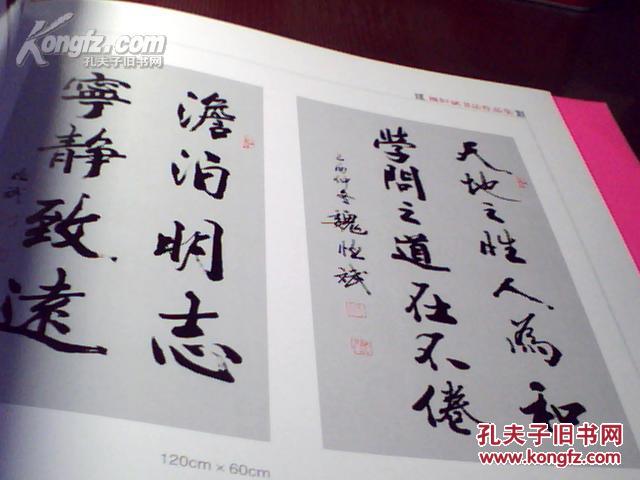 Kongfz.com
孔夫子旧书网
书法作品集
天地之性人為和
學問之道在不倦
乙酉仲冬魏恒
澹泊明志
寧靜致遠
120cm × 60cm
孔夫子旧书网
KONGFZ.COM